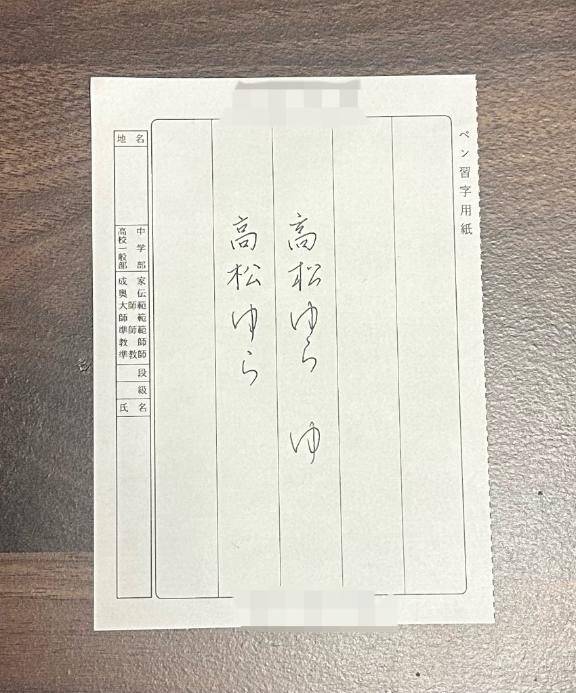 ペン習字用紙
高松ゆら ゆ
高松ゆら
地名
中学部
高校一般部
家伝範範範師師
成奥大師準教準
師師教
段
級
氏名